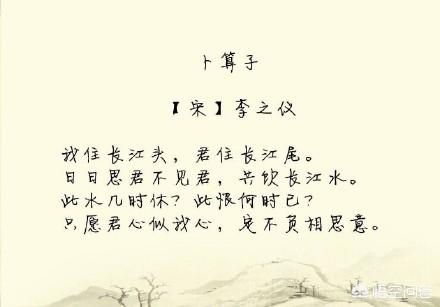 卜算子
【宋】李之仪
我住长江头，君住长江尾。
日日思君不见君，共饮长江水。
此水几时休？此恨何时已？
只愿君心似我心，定不负相思意。
悟空问答